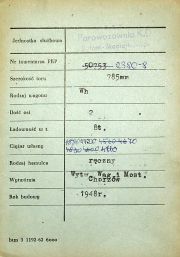 Jednostka służbowa
Parowozownia Kl.
Nr inwentarza PKP 50253 2380-8
Szerokość toru 785mm
Rodzaj wagonu Wh
Ilość osi 2
Ładowność w t 8t.
Ciężar własny
Rodzaj hamulca ręczny
Wytw. Wag. i Most.
Wytwórnia Chorzów
Rok budowy 1948r.